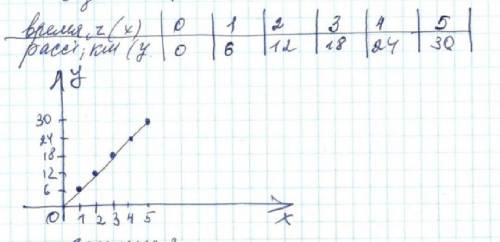 время, ч (x) | 0 | 1 | 2 | 3 | 4 | 5 |
расст, км (y | 0 | 6 | 12 | 18 | 24 | 30 |
y
30
24
18
12
6
0 1 2 3 4 5
x